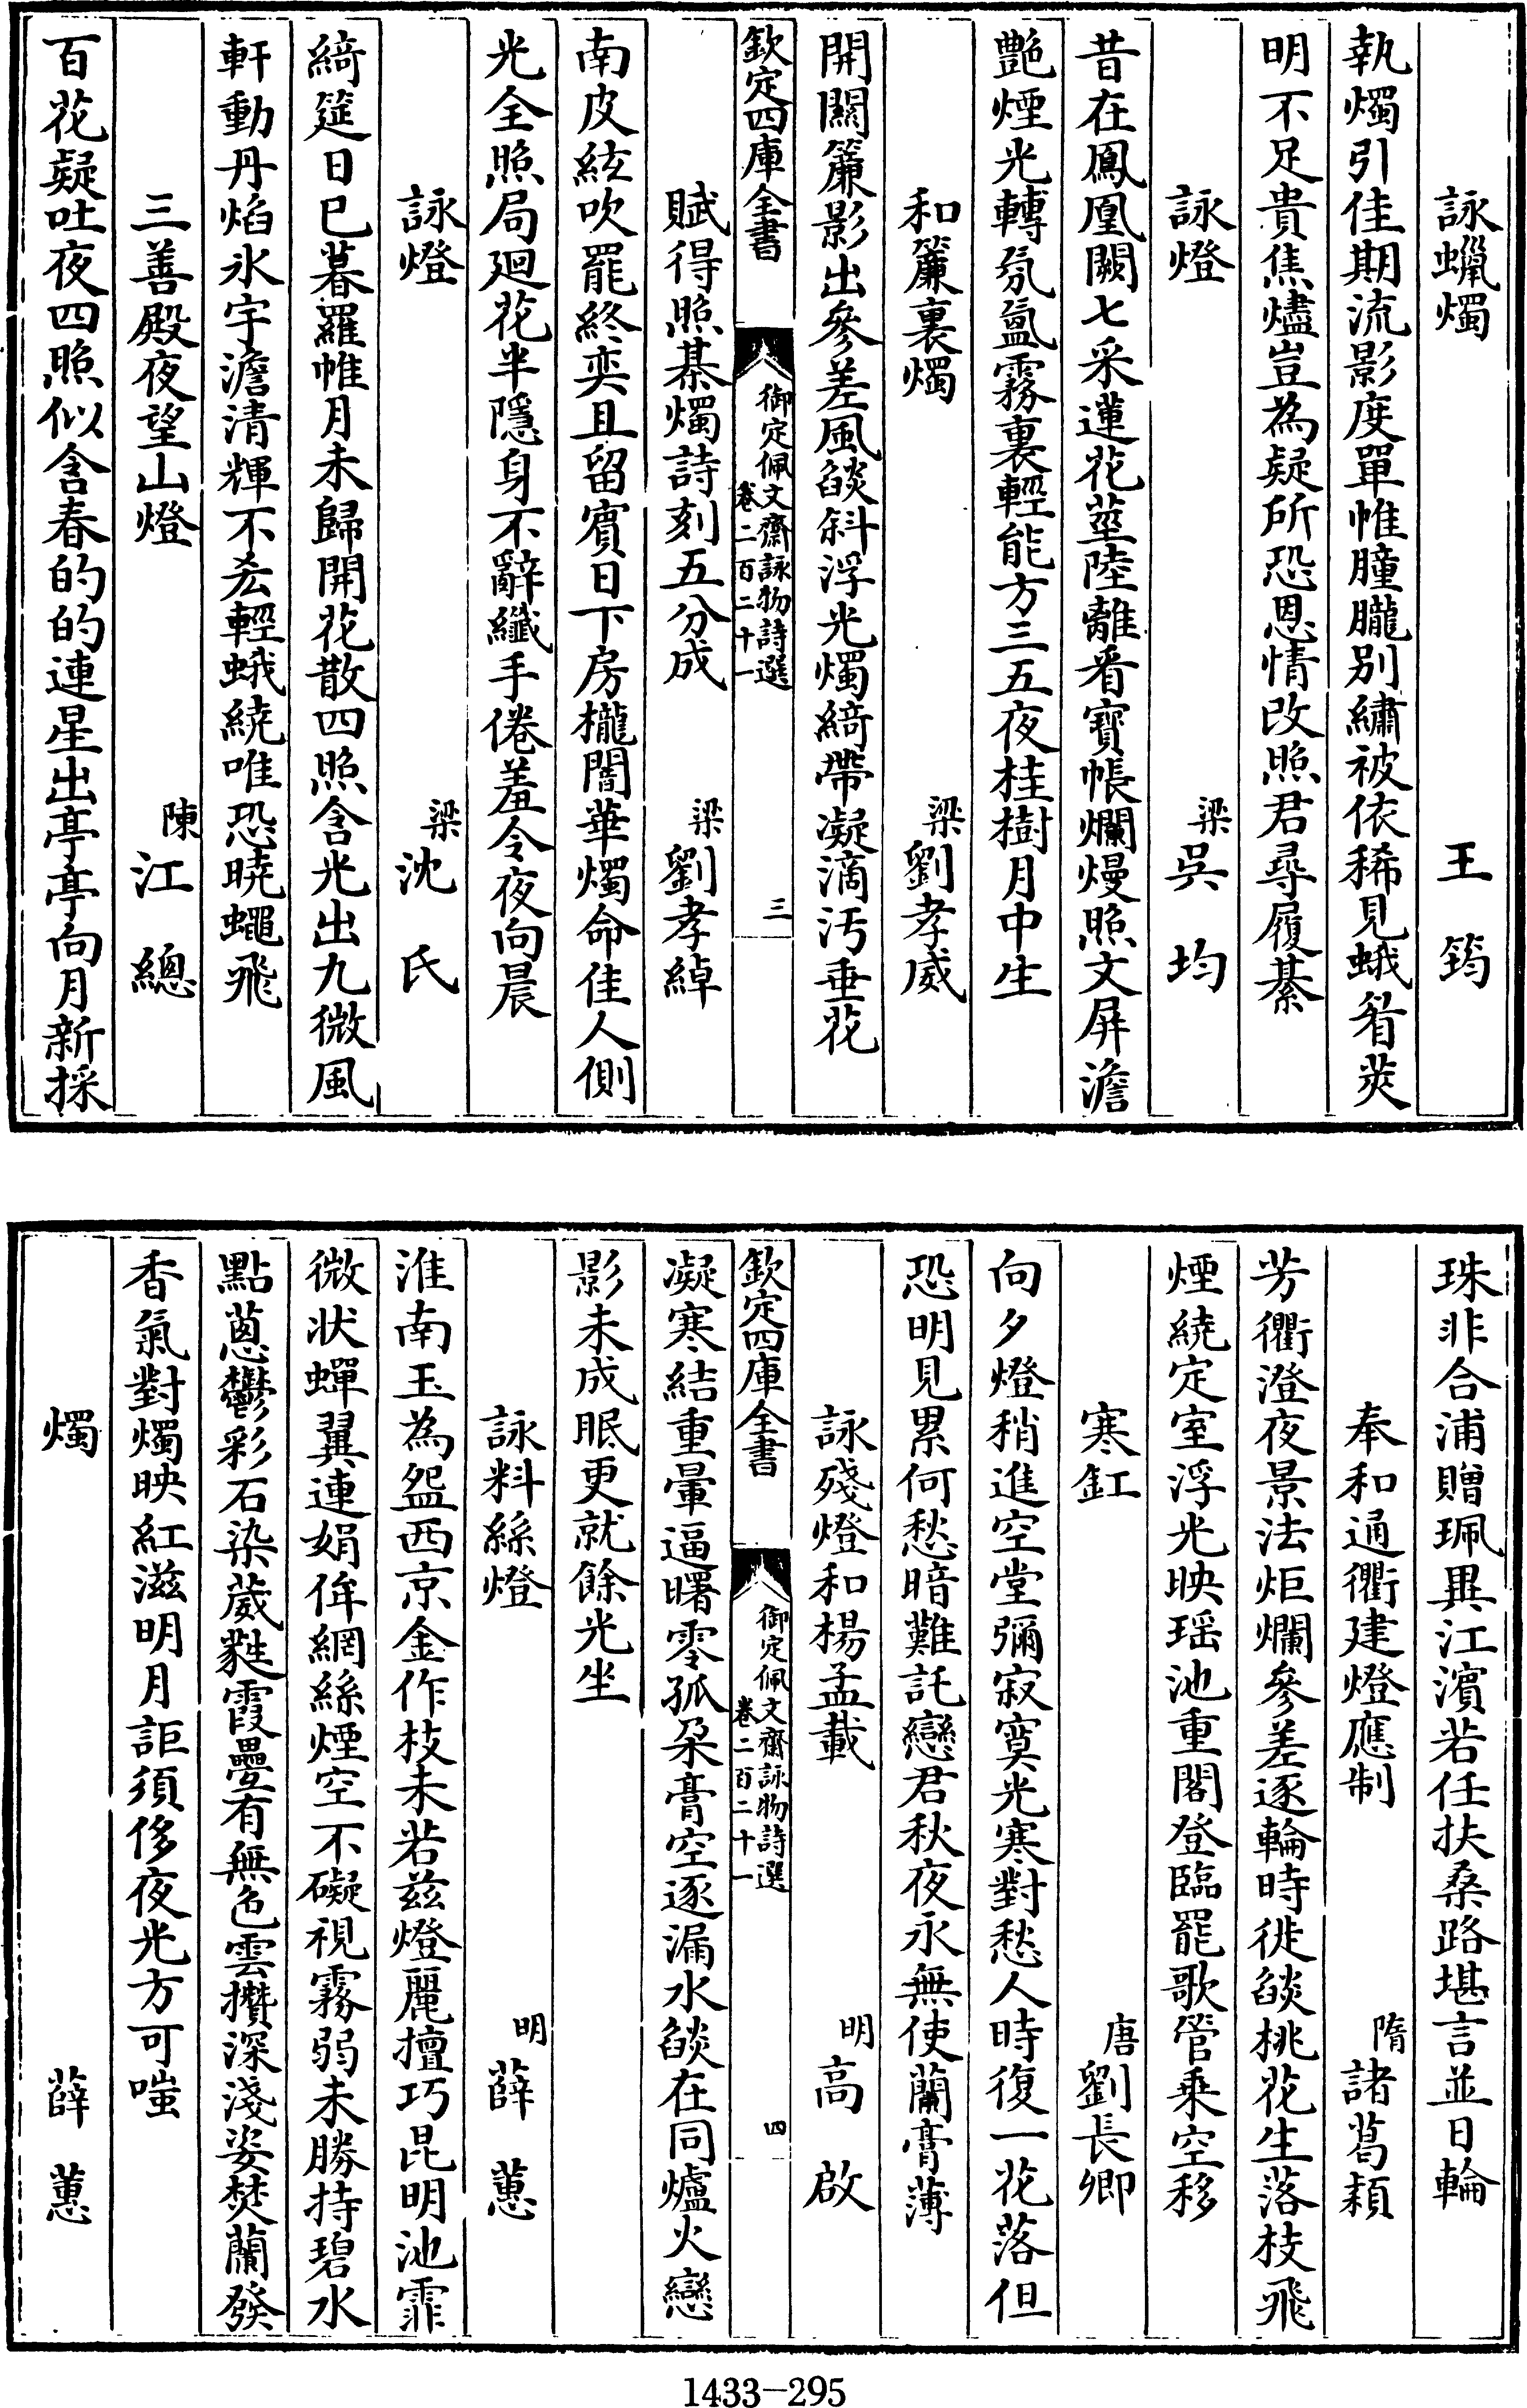 詠蠟燭　王筠
執燭引佳期流影度單帷朣朧别繡被依稀見蛾眉茭
明不足貴焦燼豈為疑所恐恩情改照君尋履綦
詠燈　梁吳均
昔在鳳凰闕七采蓮花莖陸離看寳帳爛熳照文屏澹
艷煙光轉氛氲霧裏輕能方三五夜桂樹月中生
和簾裏燭　梁劉孝威
開關簾影出參差風燄斜浮光燭綺帶凝滴汚垂花
欽定四庫全書　御定佩文齋詠物詩選卷二百二十一　三
賦得照棊燭詩刻五分成　梁劉孝綽
南皮絃吹罷終奕且留賓日下房櫳闇華燭命佳人側
光全照局廻花半隱身不辭纎手倦羞令夜向晨
詠燈　梁沈氏
綺筵日已暮羅帷月未歸開花散四照含光出九微風
軒動丹焰氷宇澹清輝不厺輕蛾繞唯恐曉蠅飛
三善殿夜望山燈　陳江總
百花疑吐夜四照似含春的的連星出亭亭向月新採
珠非合浦贈珮異江濵若任扶桑路堪言並日輪
奉和通衢建燈應制　隋諸葛穎
芳衢澄夜景法炬爛參差逐輪時徙燄桃花生落枝飛
煙繞定室浮光映瑶池重閣登臨罷歌管乗空移
寒釭　唐劉長卿
向夕燈稍進空堂彌寂寞光寒對愁人時復一花落但
恐明見累何愁暗難託戀君秋夜永無使蘭膏薄
詠殘燈和楊孟載　明高啟
欽定四庫全書　御定佩文齋詠物詩選卷二百二十一　四
凝寒結重暈逼曙零孤朶膏空逐漏水燄在同爐火戀
影未成眠更就餘光坐
詠料絲燈　明薛蕙
淮南玉為盌西京金作枝未若兹燈麗擅巧昆明池霏
微狀蟬翼連娟侔網絲煙空不礙視霧弱未勝持碧水
點蔥鬱彩石染葳蕤霞疉有無色雲攢深淺姿焚蘭發
香氣對燭映紅滋明月詎須侈夜光方可嗤
燭　薛蕙
1433-295